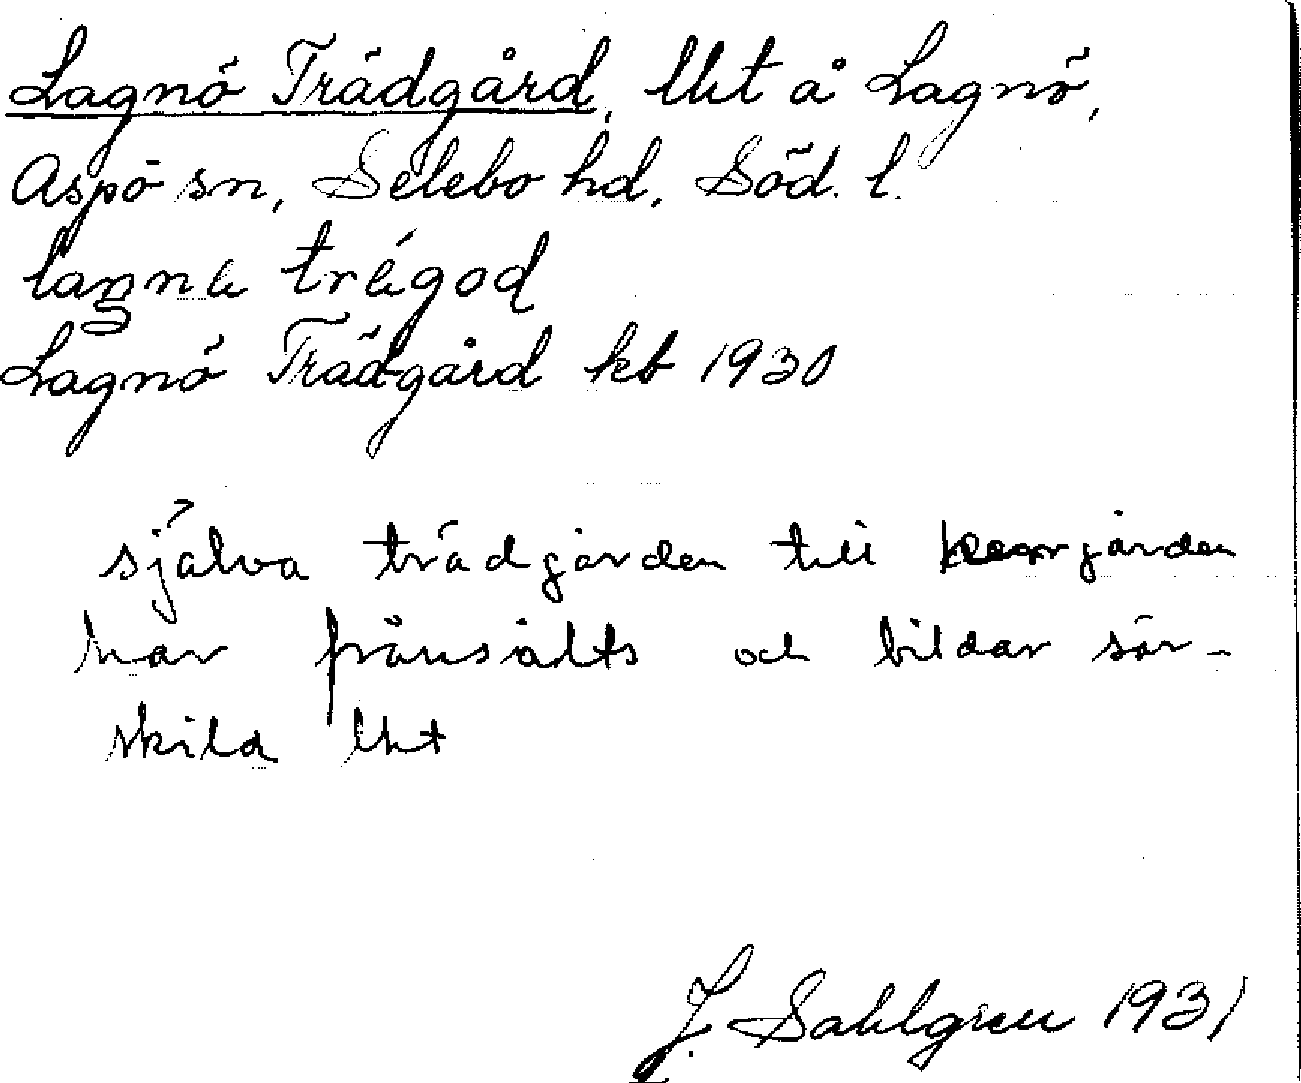 Lagnö Trädgård, lht å Lagnö,
Aspö sn, Selebo hd, Söd. l.
trä́god
Lagnö Trädgård kb 1930
själva trädgården till
har frånsålts och bildar sär-
skild lht
J. Sahlgren 1931